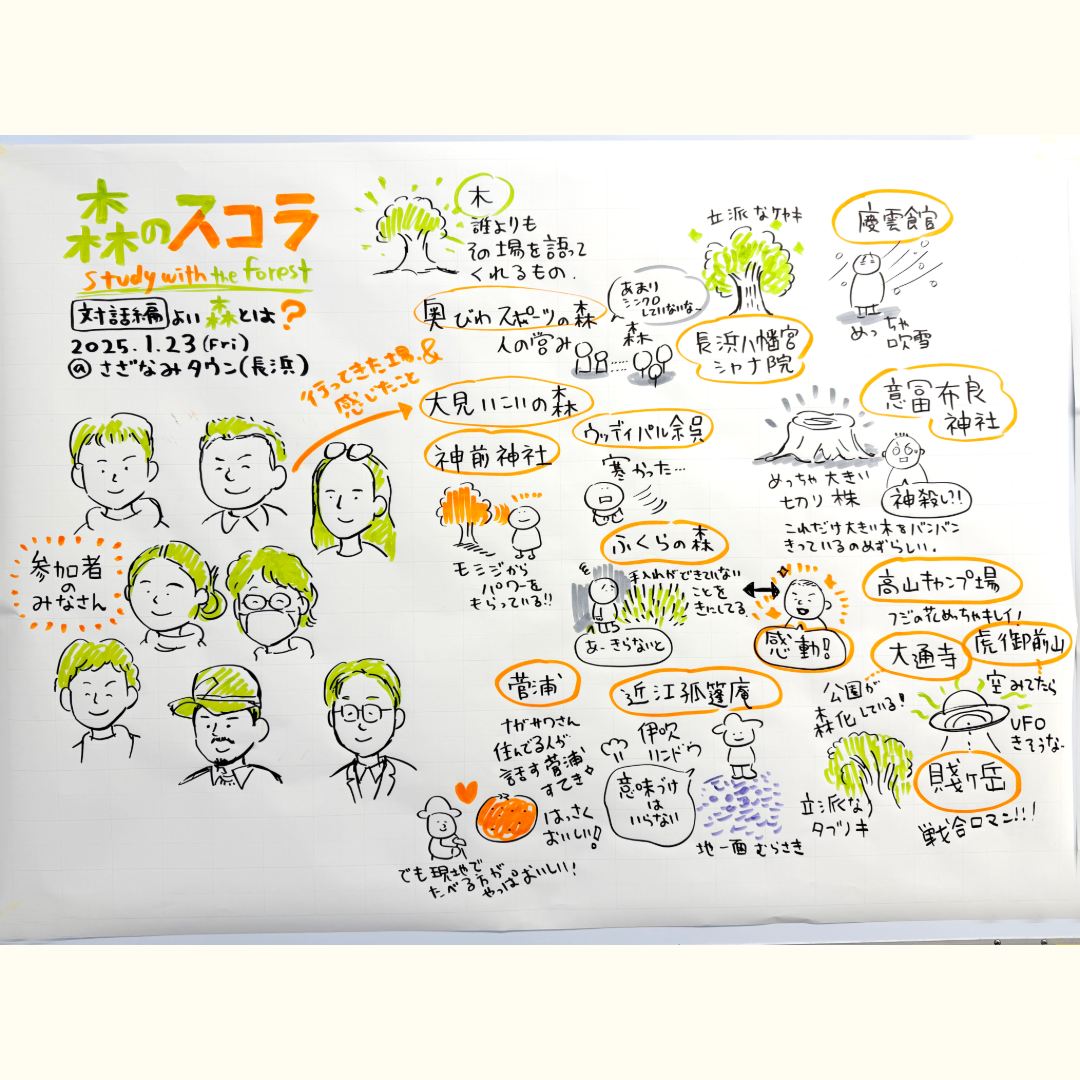 森のスコラ
study with the forest
対話編 よい森とは?
2025.1.23(Fri)
@さざなみタウン(長浜)
行ってきた場所&
感じたこと
参加者
の
みなさん
木
誰よりも
その場を語って
くれるもの.
奥びわスポーツの森
人の営み
森
あまり
シンクロ
していないな~
立派なケヤキ
長浜八幡宮
シャナ院
慶雲館
めっちゃ
吹雪
大見いこいの森
神前神社
モミジから
パワーを
もらっている!!
ウッディパル余呉
寒かった…
意冨布良
神社
めっちゃ大きい
切り株
神殺し?!
これだけ大きい木をバンバン
きっているのめずらしい.
ふくらの森
手入れができていない
ことを
きにしてる
あ~きらないと
感動!
高山キャンプ場
フジの花めちゃキレイ!
大通寺
公園が
森化している!
立派な
タブノキ
虎御前山
空みてたら
UFO
きそうな
賤ヶ岳
戦合ロマン!!!
菅浦
ナガサワさん
住んでる人が
話す菅浦
すてき
はっさく
おいしい!
でも現地で
たべる方が
やっぱおいしい!
近江孤篷庵
伊吹
リンドウ
意味づけ
は
いらない
地一面むらさき